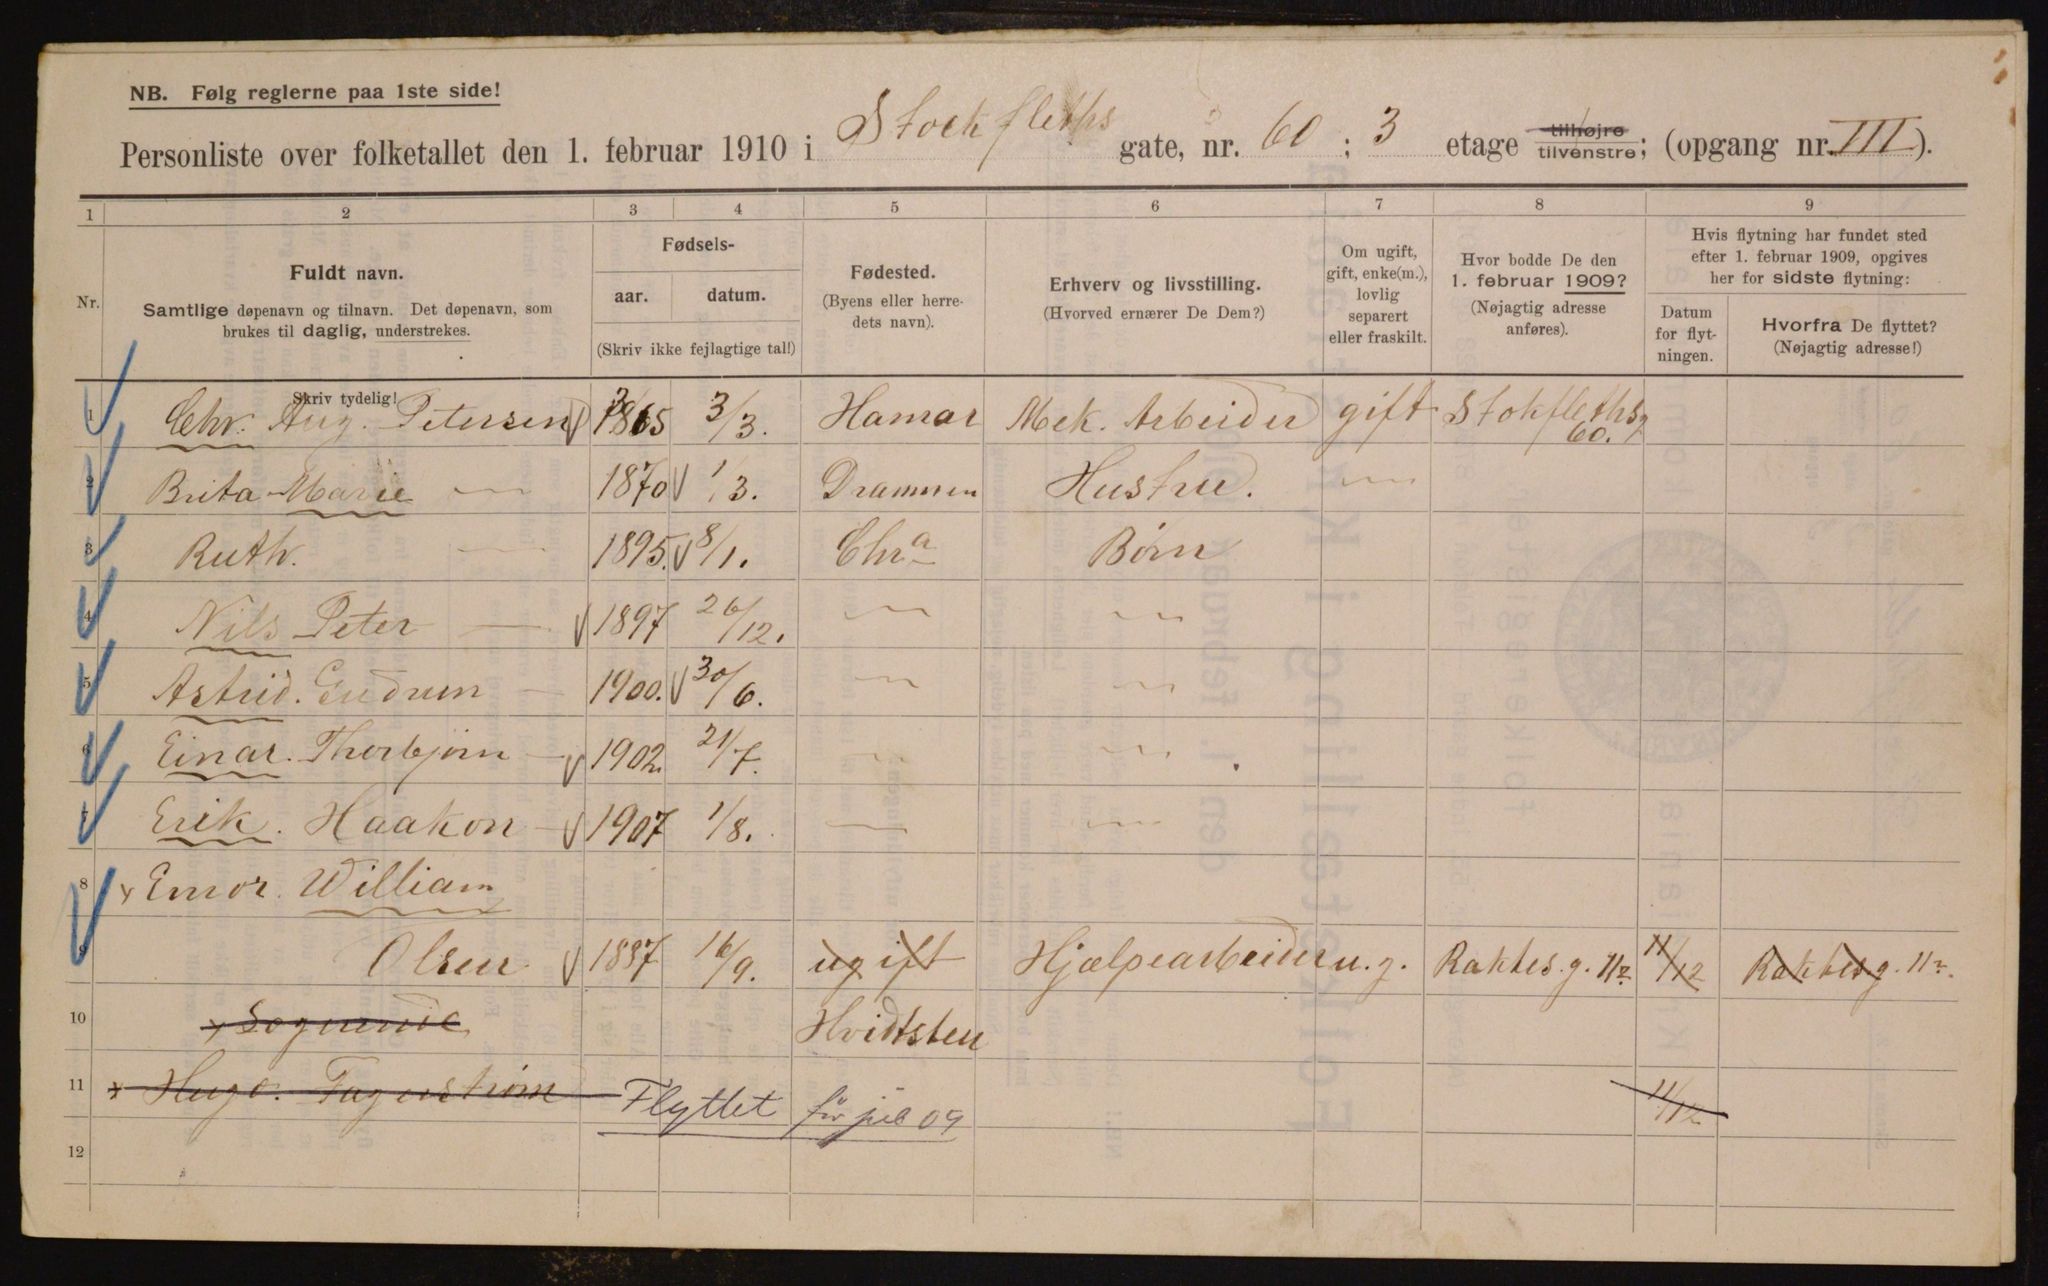 NB. Følg reglerne paa 1ste side!
Personliste over folketallet den 1. februar 1910 i Stockfleths gate, nr. 60 ; 3 etage tilhøjre tilvenstre; (opgang nr. III).
1 2 3 4 5 6 7 8 9
Nr.
Fuldt navn.
Samtlige døpenavn og tilnavn. Det døpenavn, som
brukes til daglig, understrekes.
Skriv tydelig!
Fødsels-
aar. datum.
(Skriv ikke fejlagtige tal!)
Fødested.
(Byens eller herre-
dets navn).
Erhverv og livsstilling.
(Hvorved ernærer De Dem?)
Om ugift,
gift, enke(m.),
lovlig
separert
eller fraskilt.
Hvor bodde De den
1. februar 1909?
(Nøjagtig adresse
anføres).
Hvis flytning har fundet sted
efter 1. februar 1909, opgives
her for sidste flytning:
Datum
for flyt-
ningen.
Hvorfra De flyttet?
(Nøjagtig adresse!)
1 Chr. Aug. Petersen 1865 3/3. Hamar Mek. Arbeider gift Stokflethsg 60.
2 Brita Marie — 1870 1/3. Drammen Hustru. —
3 Ruth. — 1895. 8/1. Chra Børn
4 Nils Peter — 1897 26/12. — —
5 Astrid. Gudrun — 1900. 30/6. — —
6 Einar. Thorbjørn — 1902. 21/7. — —
7 Erik. Haakon — 1907 1/8. — —
8 x William
9 Olsen 1887 16/9. ugift Hjælpearbeider u.g. 11/12
10 Hvidtsten
11 x Hugo. Fagerstrøm Flyttet før jul 09 11/12
12